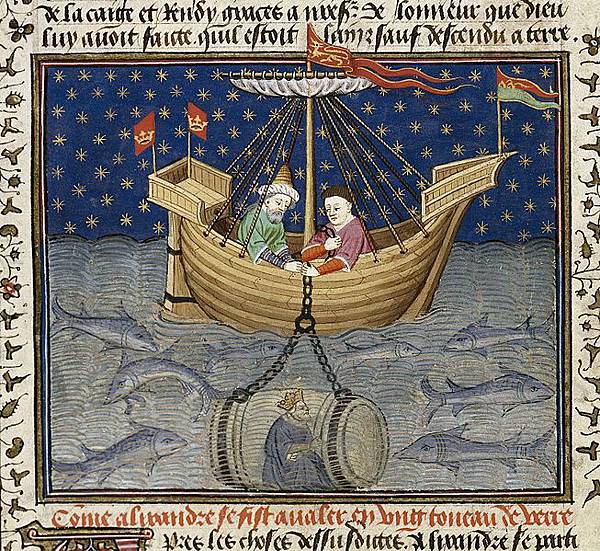 de la caige et Rendy graces a De lonneur que dieu
luy auoit faicte quil estoit sain sauf descendu a terre
Cōme alixandre se fist aualer en vng toneau de verre
Pres les choses dessusdictes Alixandre se parti